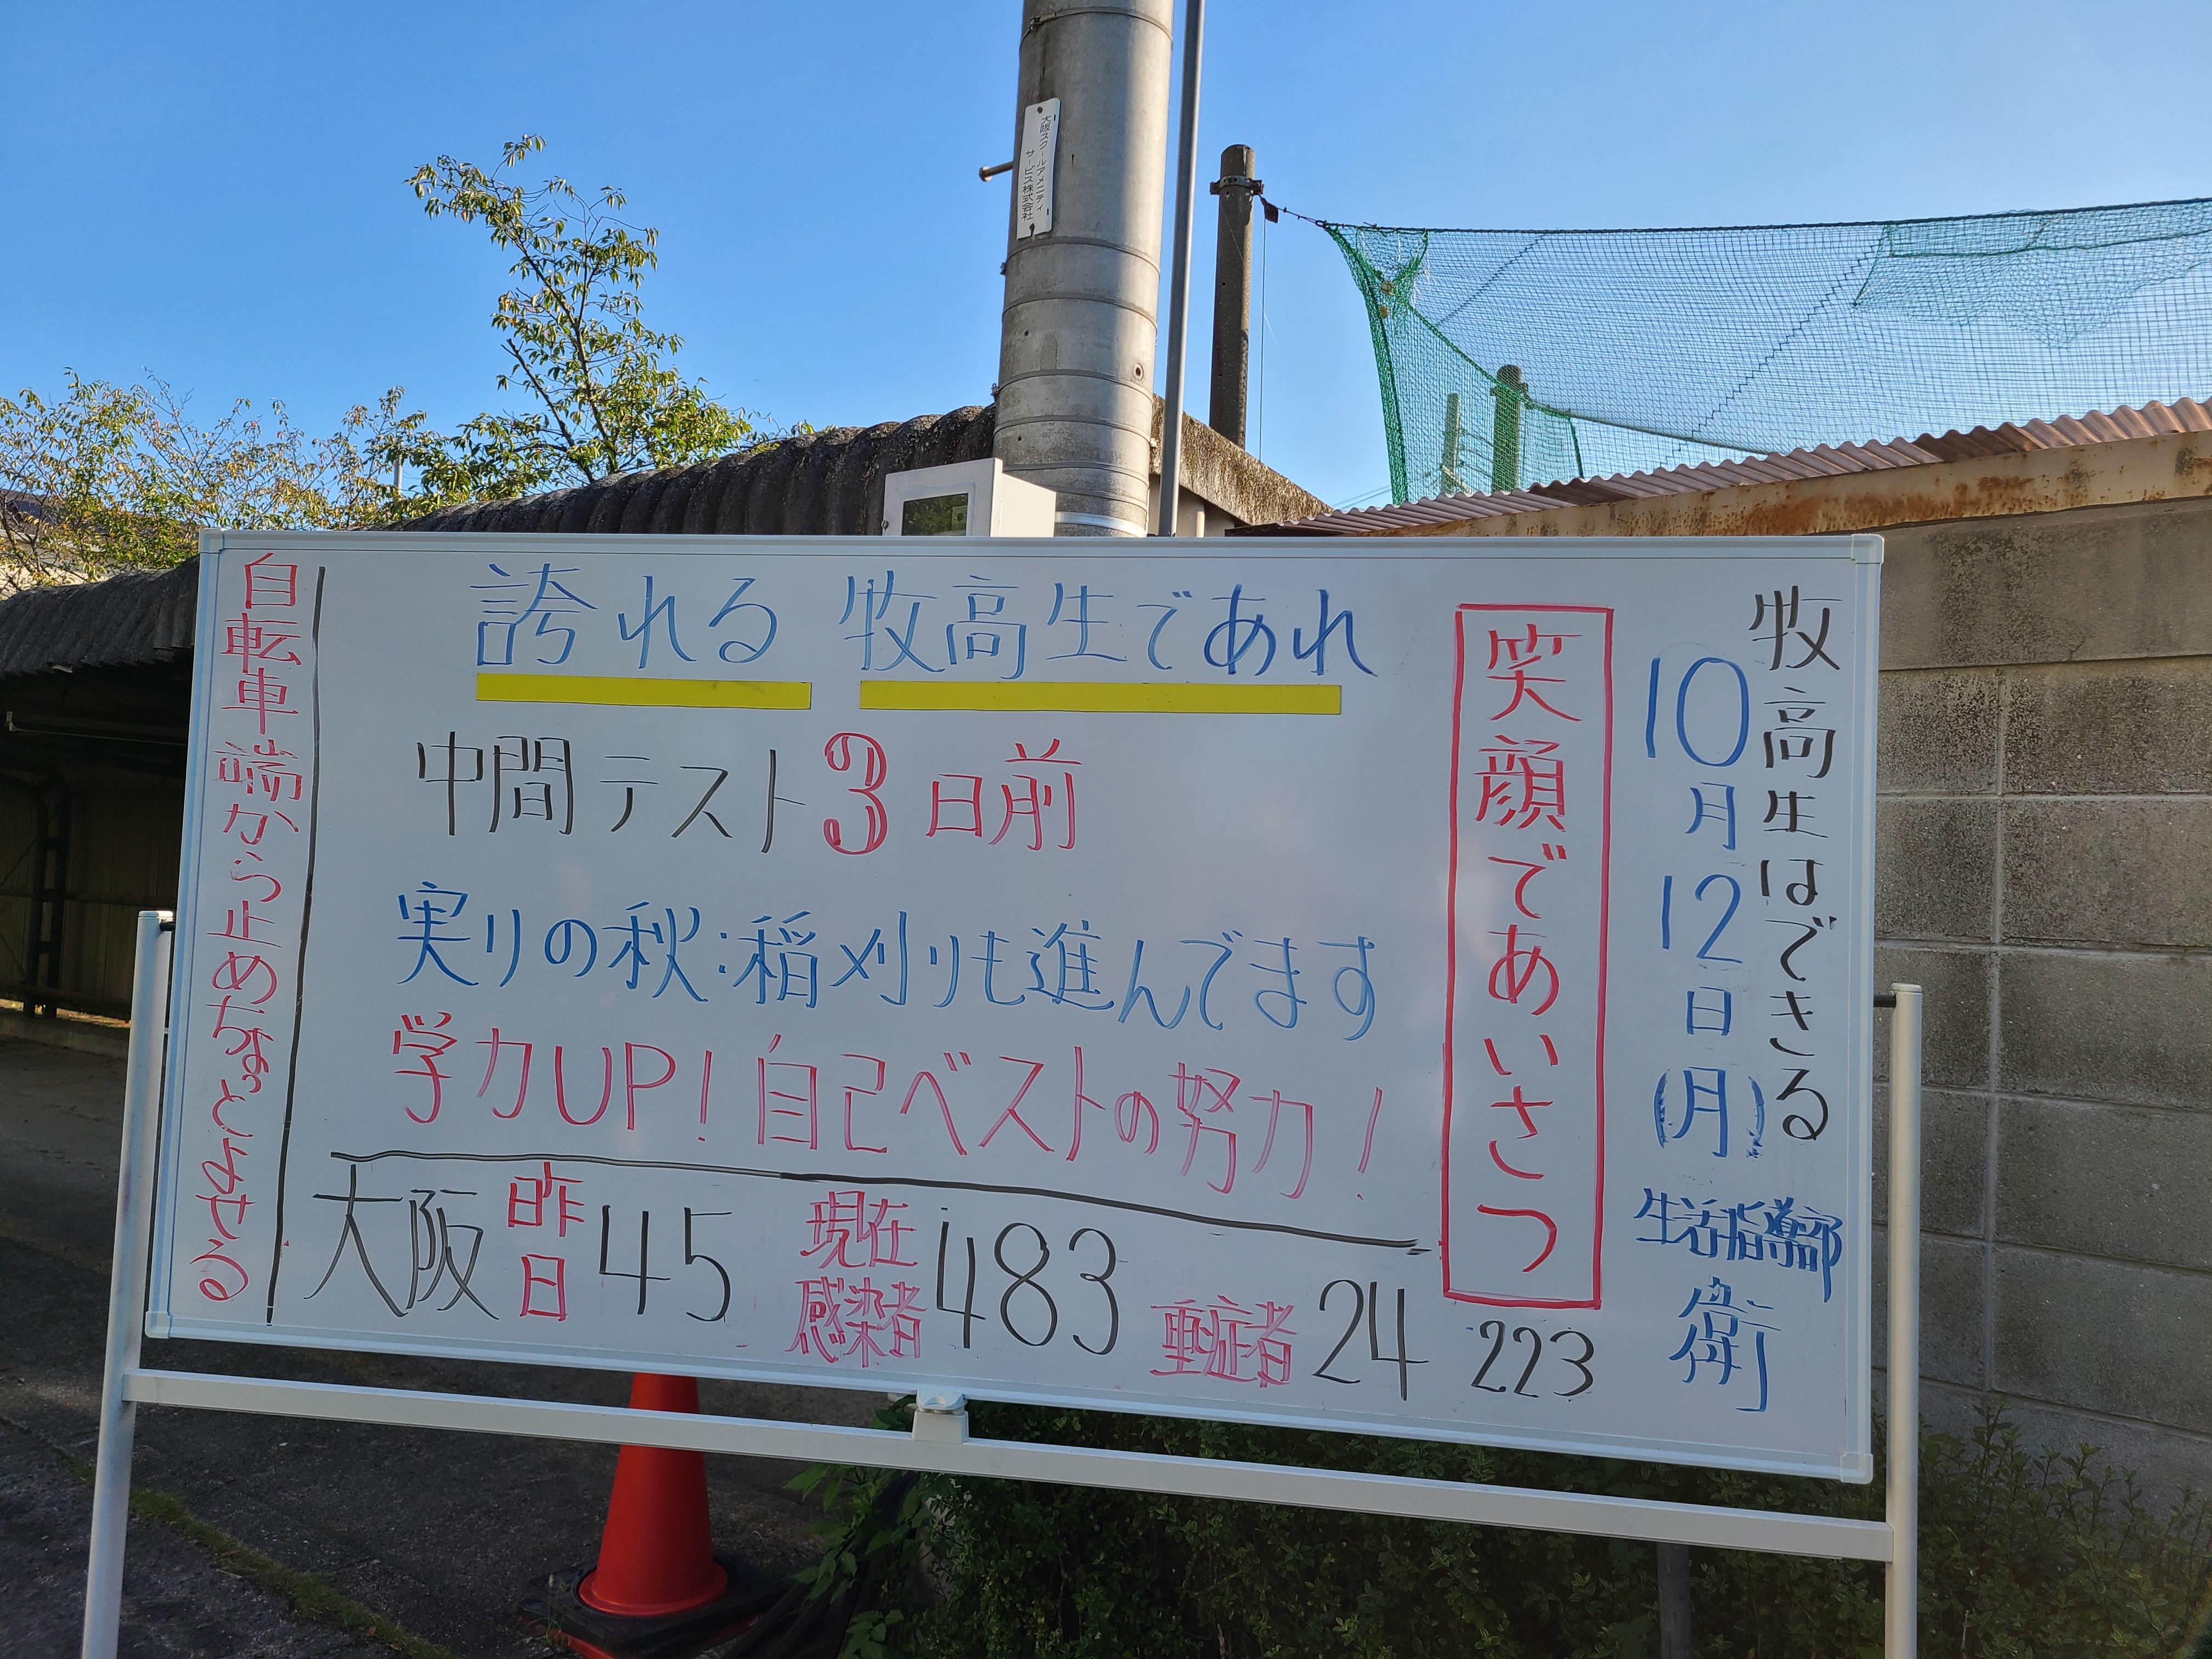 大阪スクールアメニティ
サービス株式会社
牧高生はできる
10月12日(月)
生活指導部
衛
笑顔であいさつ
誇れる 牧高生であれ
中間テスト3日前
実りの秋:稲刈りも進んでます
学力UP!自己ベストの努力!
大阪 昨日 45 現在感染者 483 重症者 24 223
自転車端から止めちょっとよせる